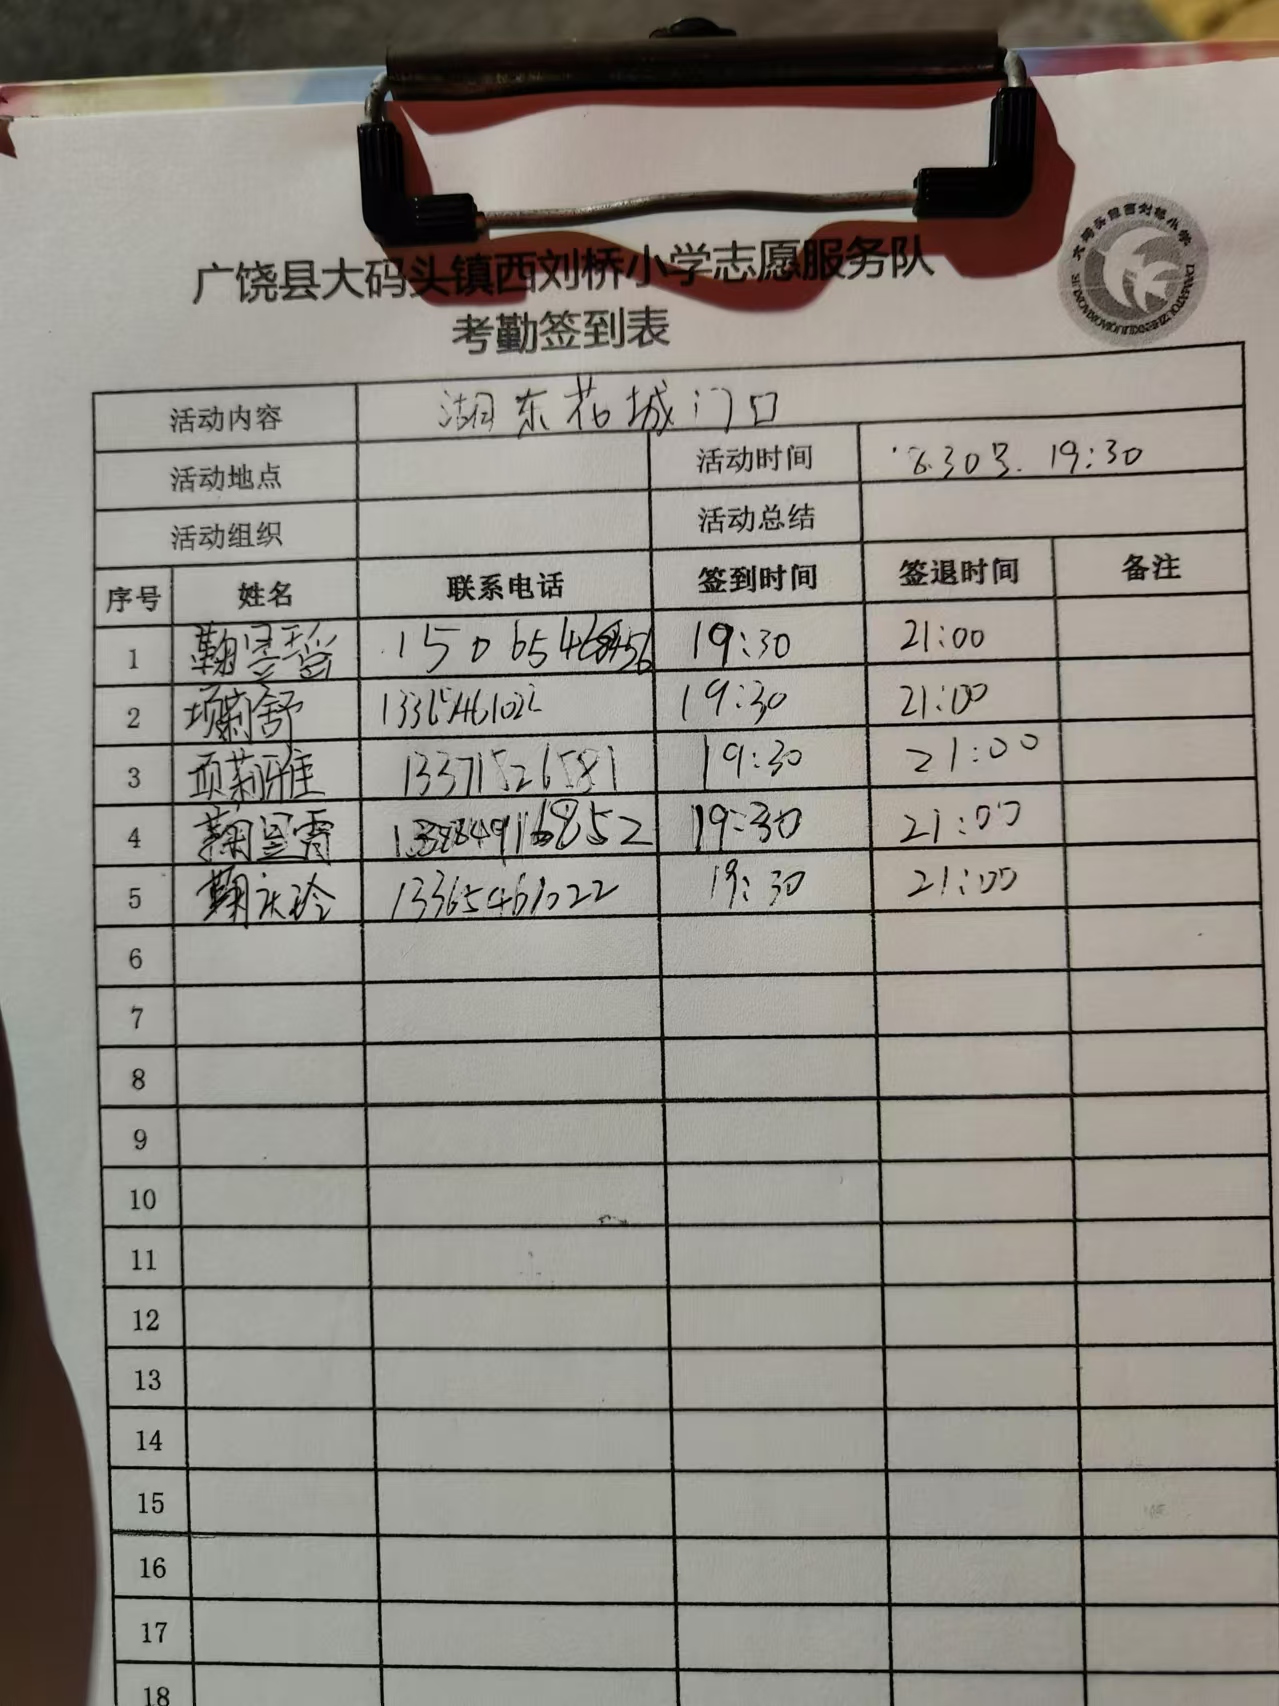 广饶县大码头镇西刘桥小学志愿服务队
考勤签到表
活动内容 湖东花城门口
活动地点 活动时间 8.30号. 19:30
活动组织 活动总结
序号 姓名 联系电话 签到时间 签退时间 备注
1 19:30 21:00
2 项莉舒 13365461022 19:30 21:00
3 项莉雅 13371526581 19:30 21:00
4 19:30 21:00
5 鞠庆玲 13365461022 19:30 21:00
6
7
8
9
10
11
12
13
14
15
16
17
18